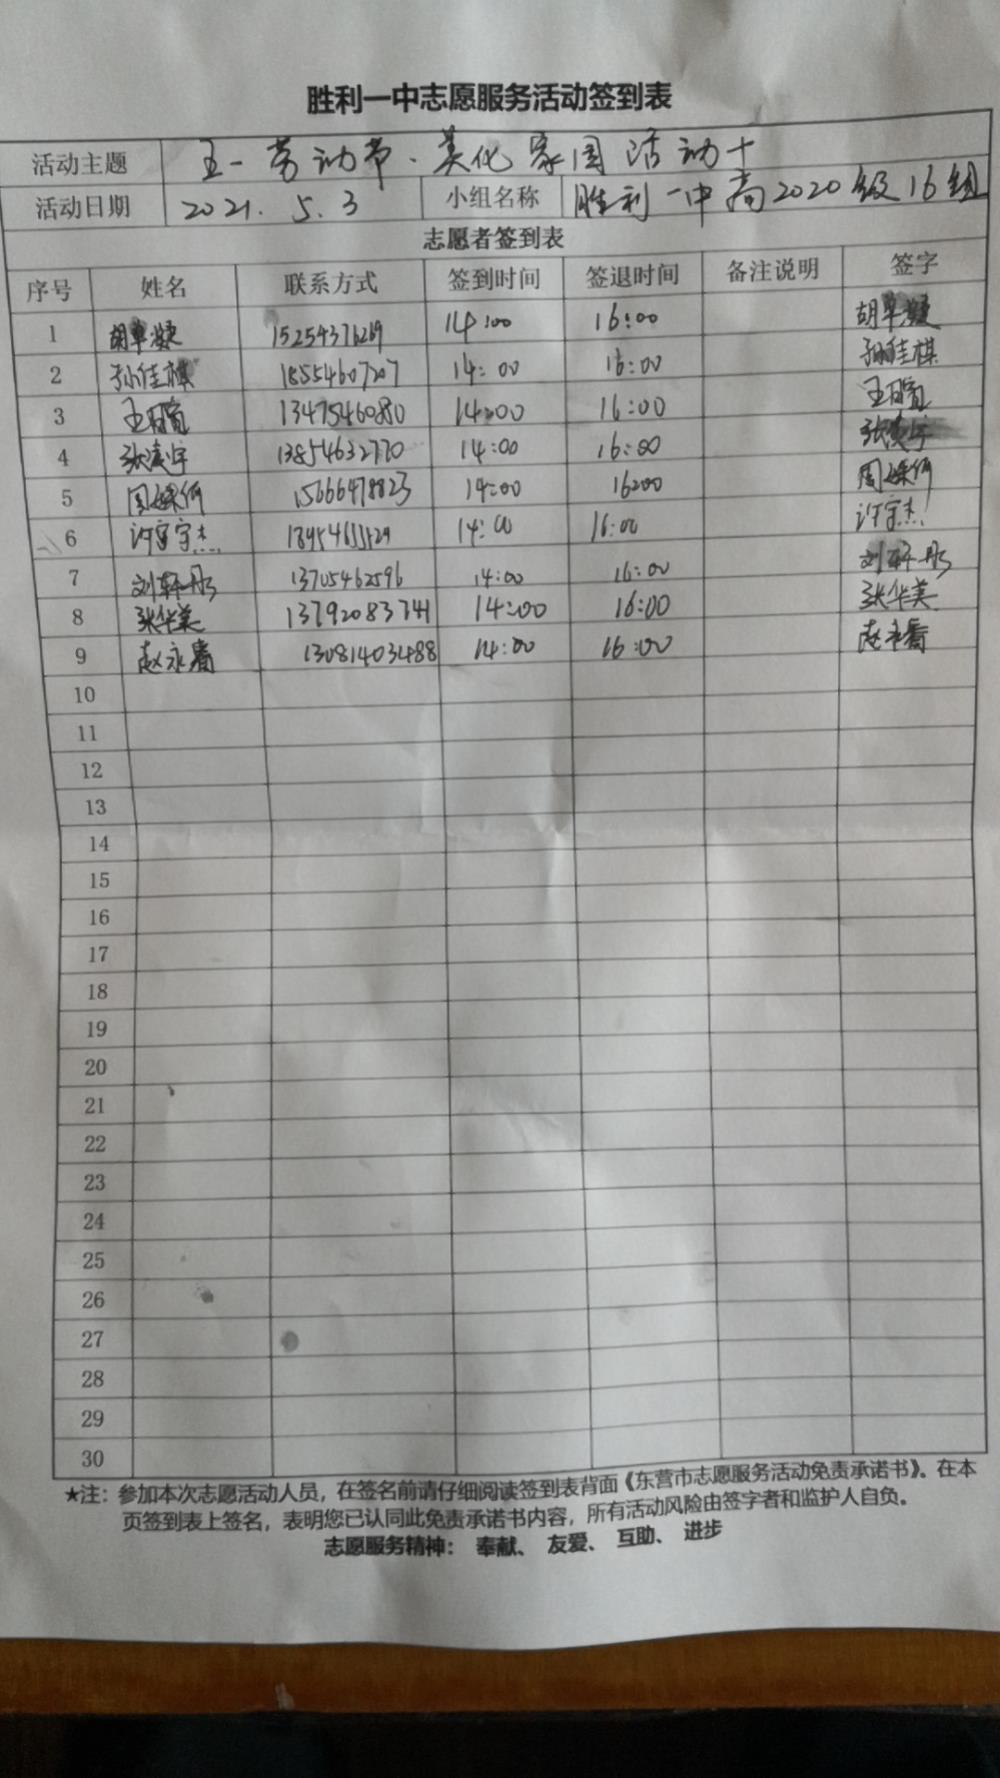 胜利一中志愿服务活动签到表
活动主题 五一劳动节·美化家园活动十
活动日期 2021.5.3 小组名称 胜利一中高2020级16组
志愿者签到表
序号 姓名 联系方式 签到时间 签退时间 备注说明 签字
1 胡 15254376269 14:00 16:00 胡
2 孙佳棋 18554607207 14:00 16:00 孙佳棋
3 王 13475460880 14:00 16:00 王
4 张凌宇 13854632770 14:00 16:00 张凌宇
5 周 15666478823 14:00 16:00 周
6 许宇杰 14:00 16:00 许宇杰
7 刘轩彤 13705462596 14:00 16:00 刘轩彤
8 张华美 13792083741 14:00 16:00 张华美
9 赵永 13081403488 14:00 16:00 赵永
10
11
12
13
14
15
16
17
18
19
20
21
22
23
24
25
26
27
28
29
30
★注：参加本次志愿活动人员，在签名前请仔细阅读签到表背面《东营市志愿服务活动免责承诺书》。在本
页签到表上签名，表明您已认同此免责承诺书内容，所有活动风险由签字者和监护人自负。
志愿服务精神： 奉献、 友爱、 互助、 进步